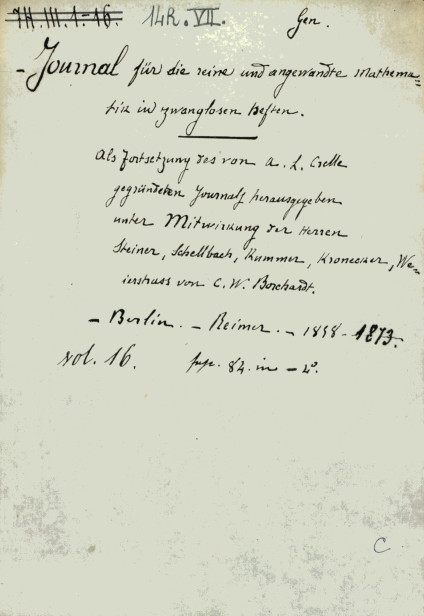 7H.III.1-16. 14R.VII. Gen.
- Journal für die reine und angewandte Mathema=
tik in zwanglosen Heften.
Als Fortsetzung des von A. L. Crelle
gegründeten Journals herausgegeben
unter Mitwirkung der Herren
Steiner, Schellbach, Kummer, Kronecker, We=
ierstrass von C. W. Borchardt.
- Berlin. - Reimer. - 1858-1873.
vol. 16. 84. in - 4°.
C